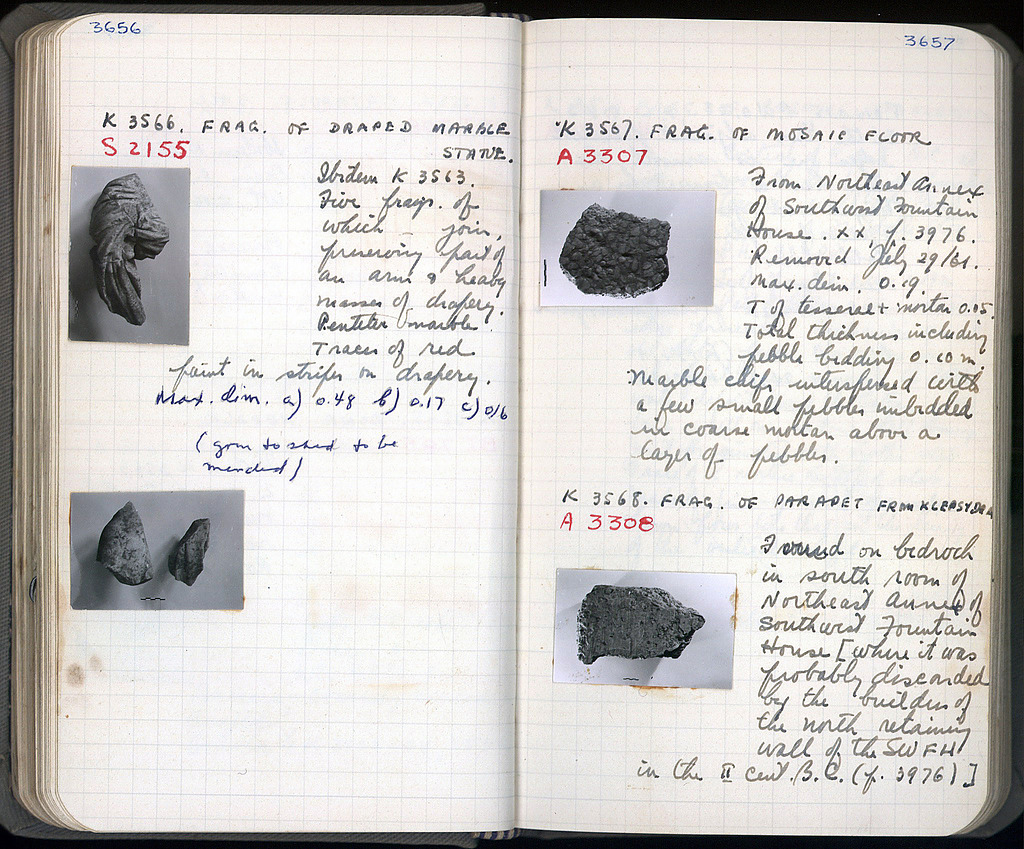 3656
K 3566. FRAG. OF DRAPED MARBLE
STATUE.
S 2155
Ibidem K 3563.
Five frags. of
which join,
preserving part of
an arm & heavy
masses of drapery.
Pentelic marble.
Traces of red
paint in stripes on drapery.
Max. dim. a) 0.48 b) 0.17 c) 0.16
to be
mended)
3657
K 3567. FRAG. OF MOSAIC FLOOR
A 3307
From Northeast Annex
of Southwest Fountain
House. XX, p. 3976.
Removed July 29/61.
Max. dim. 0.19.
T of tesserae + mortar 0.05.
Total thickness including
pebble bedding 0.10 m.
Marble chips interspersed with
a few small pebbles imbedded
in coarse mortar above a
layer of pebbles.
K 3568. FRAG. OF PARAPET FROM KLEPSYDRA
A 3308
Found on bedrock
in south room of
Northeast Annex of
Southwest Fountain
House [where it was
probably discarded
by the builders of
the north retaining
wall of the SWFH
in the II cent. B.C. (p. 3976)]